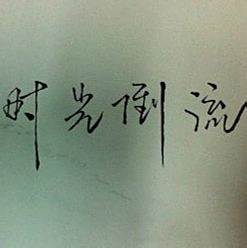 时光倒流